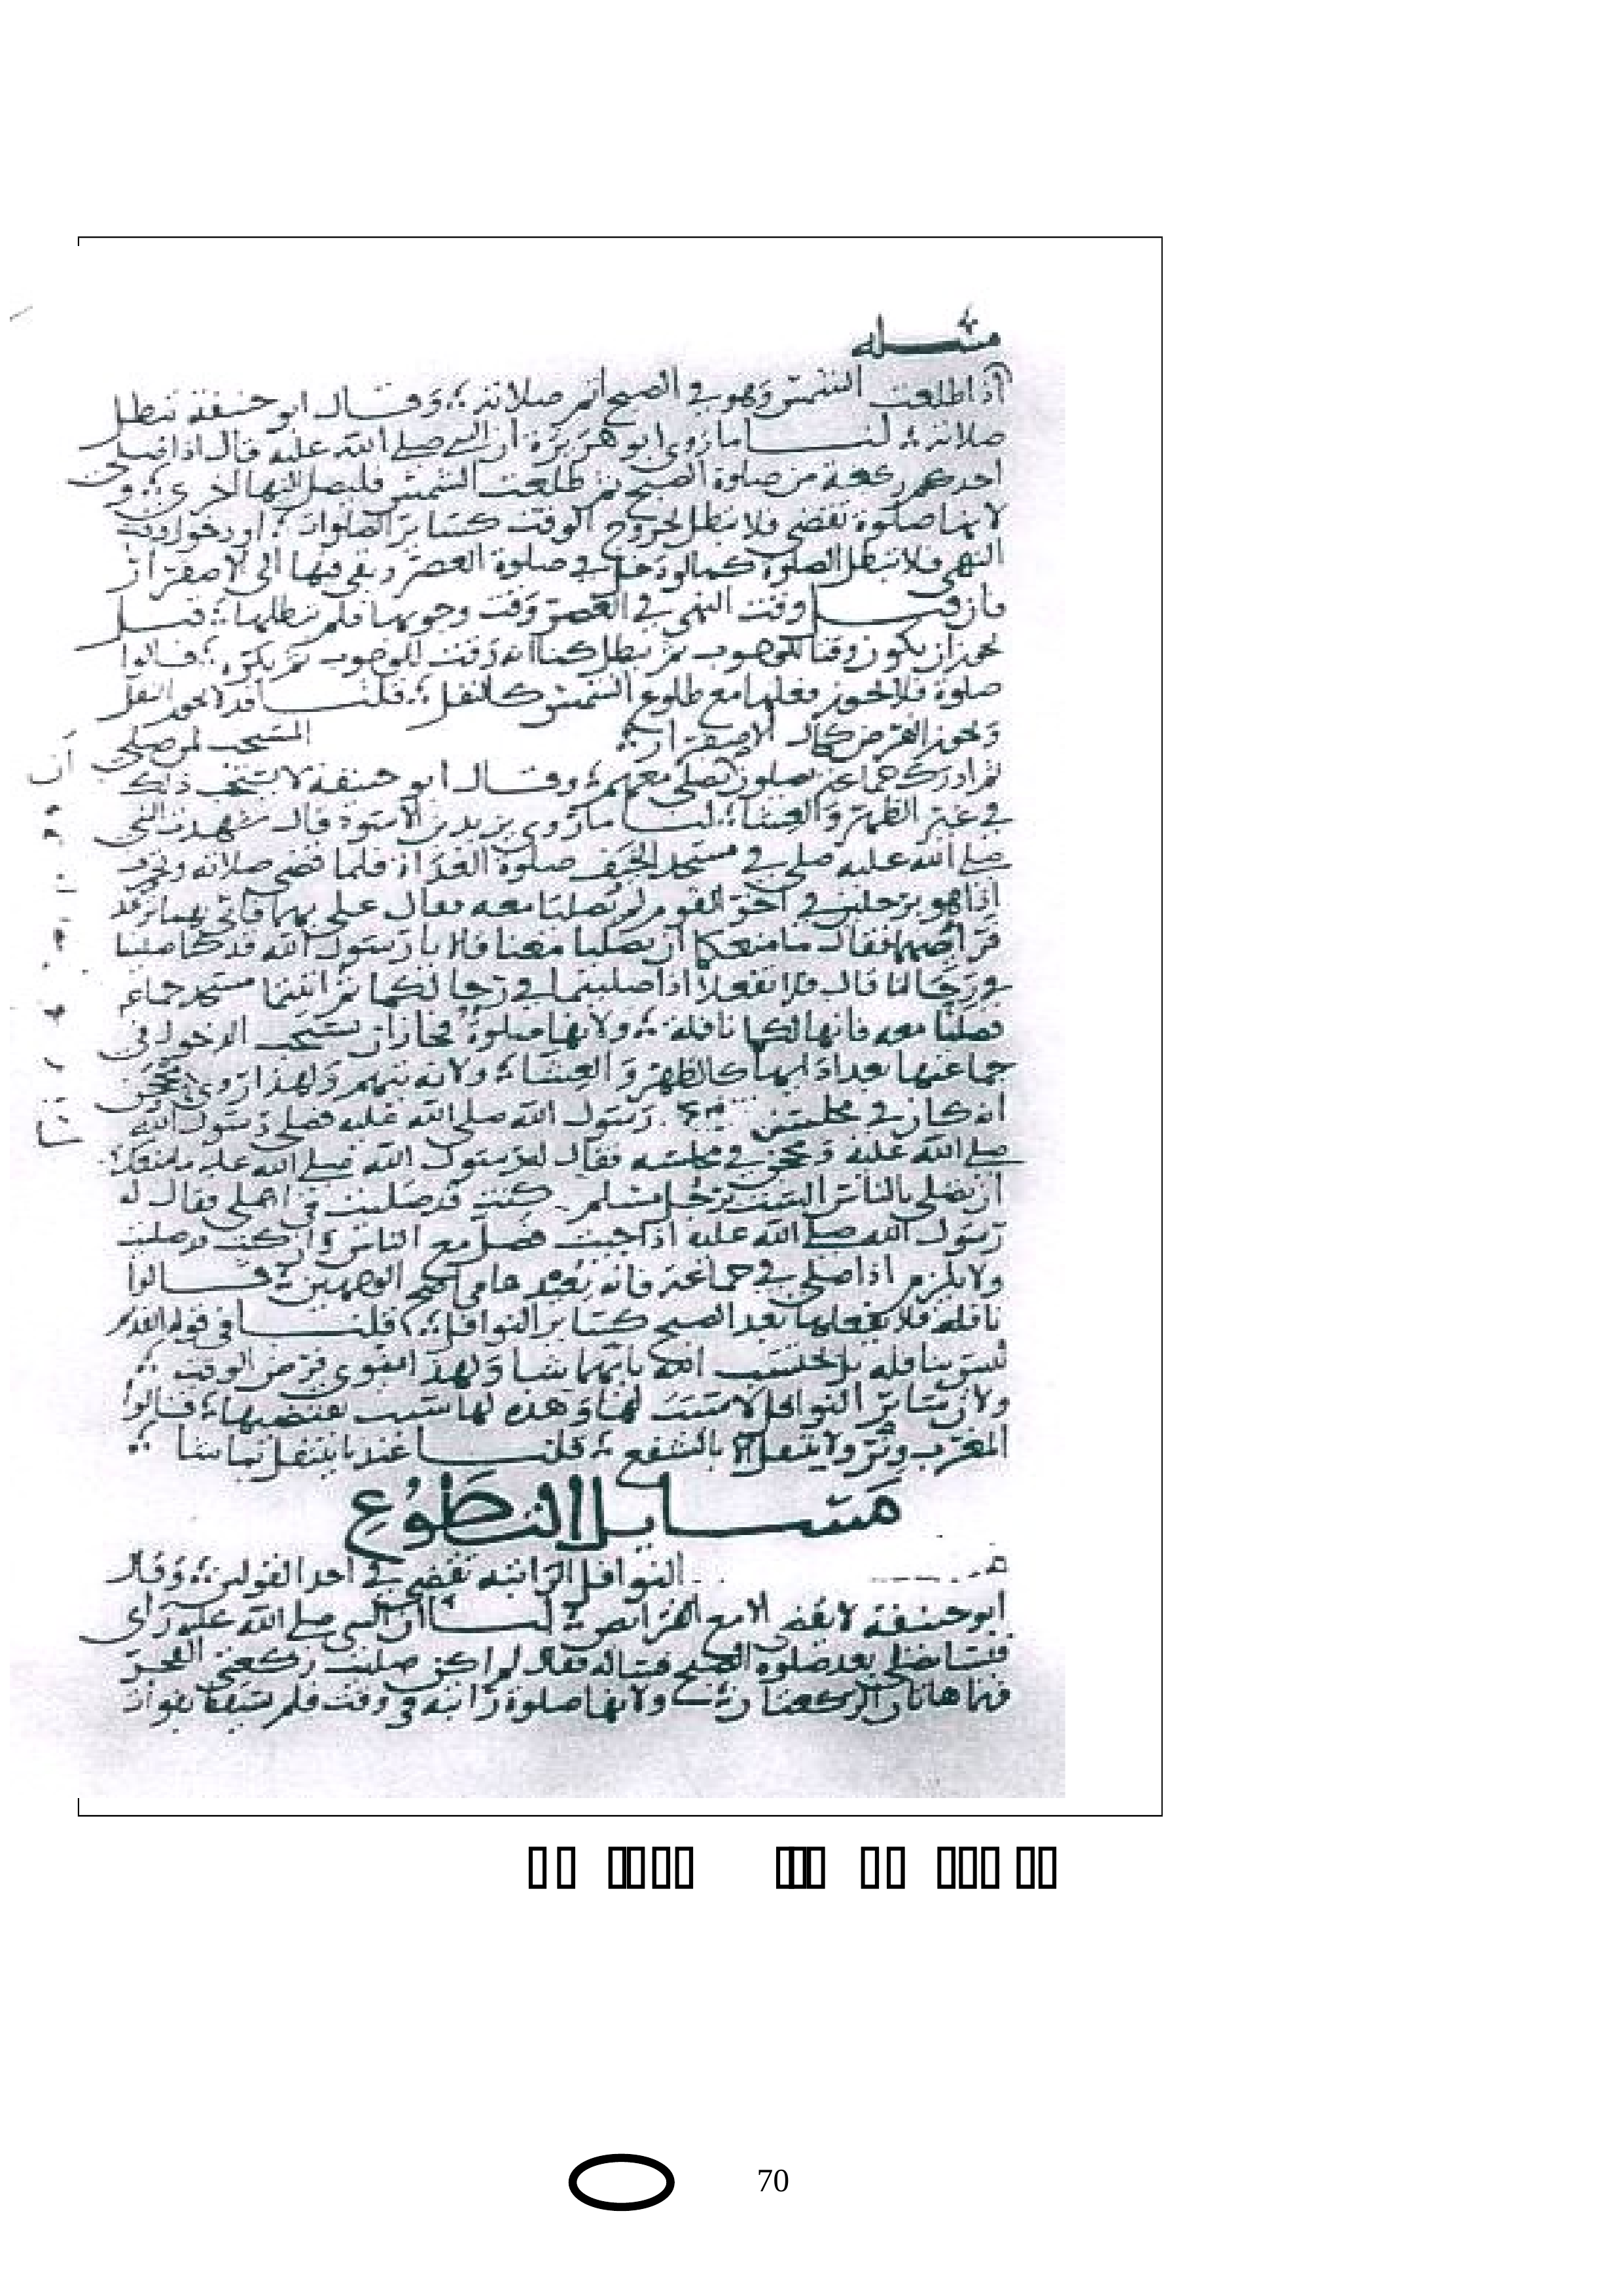 مسله
اذا طلعت الشمس وهو في الصبح اتم صلاته وقال ابو حنيفة تبطل
صلاته لنا ما روى ابو هريرة ان النبي صلى الله عليه قال اذا صلى
احدكم ركعة من صلوة الصبح ثم طلعت الشمس فليصل اليها اخرى و
لانها صلوة تقضى فلا تبطل لخروج الوقت كسائر الصلوات او دخول وقت
النهي فلا تبطل الصلوة كما لو دخل في صلوة العصر وبقي فيها الى الاصفرار
فان قيل وقت النهي في العصر وقت وجوبها فلم تبطلها قيل
يجوز ان يكون وقتا للوجوب ثم تبطل كما انه وقت للوجوب ثم يكره قالوا
صلوة فلا يجوز فعلها مع طلوع الشمس كالنفل قلنا قد لا يجوز النفل
ويجوز الفرض كحال الاصفرار المستحب لمن صلى
ثم ادرك جماعة يصلون ان يصلي معهم وقال ابو حنيفة لا يستحب ذلك
في غير الظهر والعشا لنا ما روى يزيد بن الاسود قال شهدت النبي
صلى الله عليه صلى في مسجد الخيف صلوة الغداة فلما قضى صلاته وانحرف
اذا هو برجلين في اخر القوم لم يصليا معه فقال علي بهما فاتي بهما ترعد
فرائصهما فقال ما منعكما ان تصليا معنا قالا يا رسول الله قد كنا صلينا
في رحالنا قال فلا تفعلا اذا صليتما في رحالكما ثم اتيتما مسجد جماعة
فصليا معه فانها لكما نافلة ولانها صلوة فجاز ان يستحب الدخول في
جماعتها بعد اداها كالظهر والعشا ولانه يتهم ولهذا روى محجن
انه كان في مجلس رسول الله صلى الله عليه فصلى رسول الله
صلى الله عليه ومحجن في مجلسه فقال له رسول الله صلى الله عليه ما منعك
ان تصلي بالناس الست برجل مسلم كنت قد صليت في اهلي فقال له
رسول الله صلى الله عليه اذا جيت فصل مع الناس وان كنت قد صليت
ولا يلزم اذا صلى في جماعة فانه يعيدها في اصح الوجهين قالوا
نافلة فلا يفعلها بعد الصبح كسائر النوافل قلنا في قوله القديم
ليس بنافلة بل يحتسب الله بايهما شا ولهذا ينوي فرض الوقت
ولان سائر النوافل لا سبب لها وهذه لها سبب يقتضيها قالوا
المغرب وتر ولا يتنفل الا بالشفع قلنا عندنا يتنفل بما شا
مسايل التطوع
النوافل الراتبه تقضى في احد القولين وقال
ابو حنيفة لا يقضى الا مع الفرائص لنا ان النبي صلى الله عليه راى
قيسا يصلي بعد صلوة الصبح فساله فقال لم اكن صليت ركعتي الفجر
فهما هاتان الركعتان ولانها صلوة راتبة في وقت فلم تسقط بفوات
70